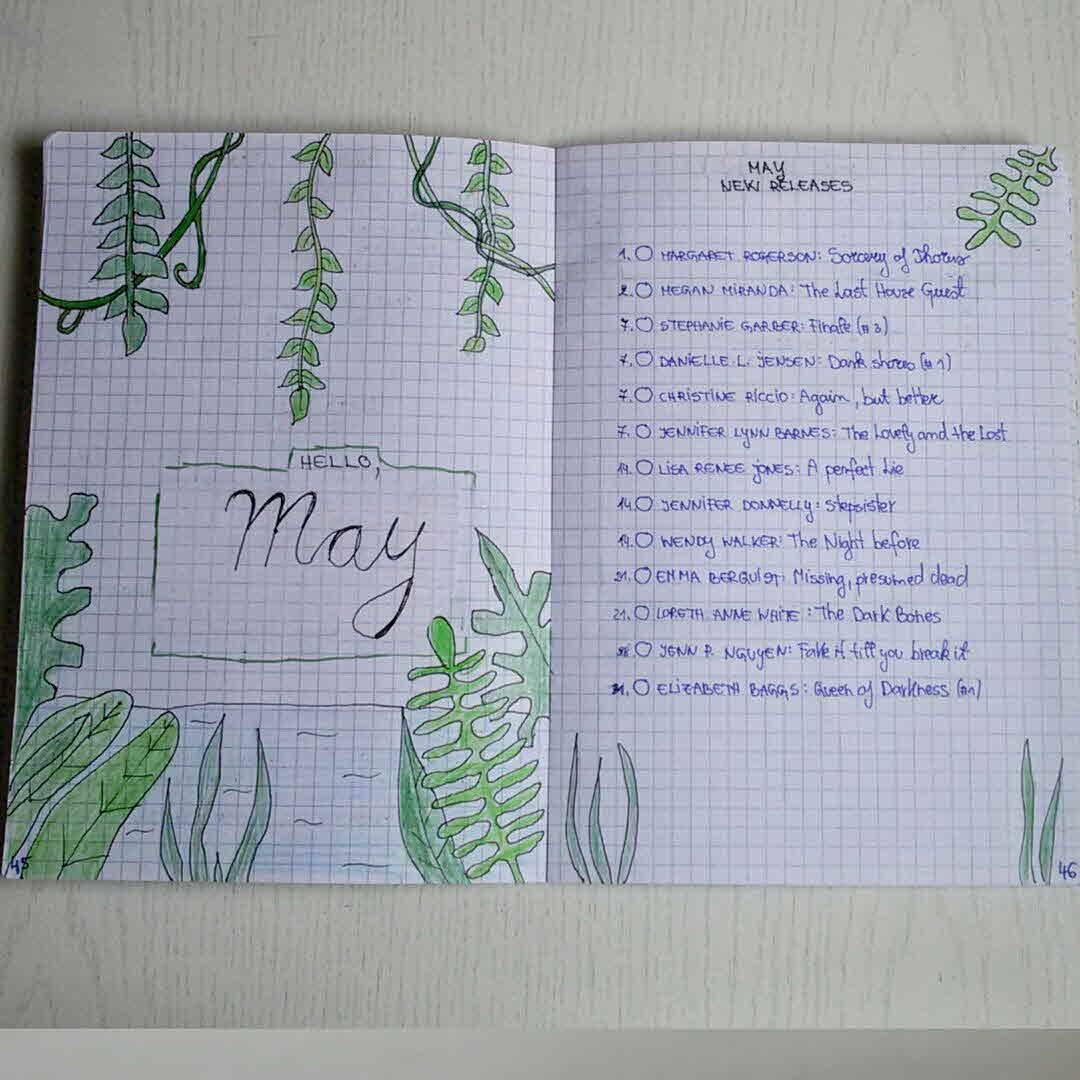 HELLO,
May
45
MAY
NEW RELEASES
1. MARGARET ROGERSON: Sorcery of Thorns
2. MEGAN MIRANDA: The Last House Guest
7. STEPHANIE GARBER: Finale (#3)
7. DANIELLE L. JENSEN: Dark shores (#1)
7. CHRISTINE RICCIO: Again, but better
7. JENNIFER LYNN BARNES: The Lovely and the Lost
14. LISA RENEE JONES: A perfect Lie
14. JENNIFER DONNELLY: Stepsister
14. WENDY WALKER: The Night before
21. EMMA BERQUIST: Missing, presumed dead
21. LORETH ANNE WHITE: The Dark Bones
JENN P. NGUYEN: Fake it till you break it
31. ELIZABETH BAGGS: Queen of Darkness (#1)
46